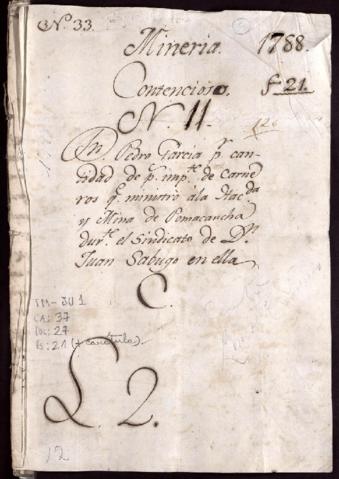 N.º 33.
Mineria. 1788.
Contencioso. f 21.
N. 11
Dn. Pedro Garcia pr. can-
tidad de ps. impte. de Carne
ros q. ministró á la Hacda.
y Mina de Pomacancha
durte. el Sindicato de Dn.
Juan Sabugo en ella
C.
TM-JU 1
CA: 37
DOC: 27
fs: 21 (+ carátula).
L. 2.
12